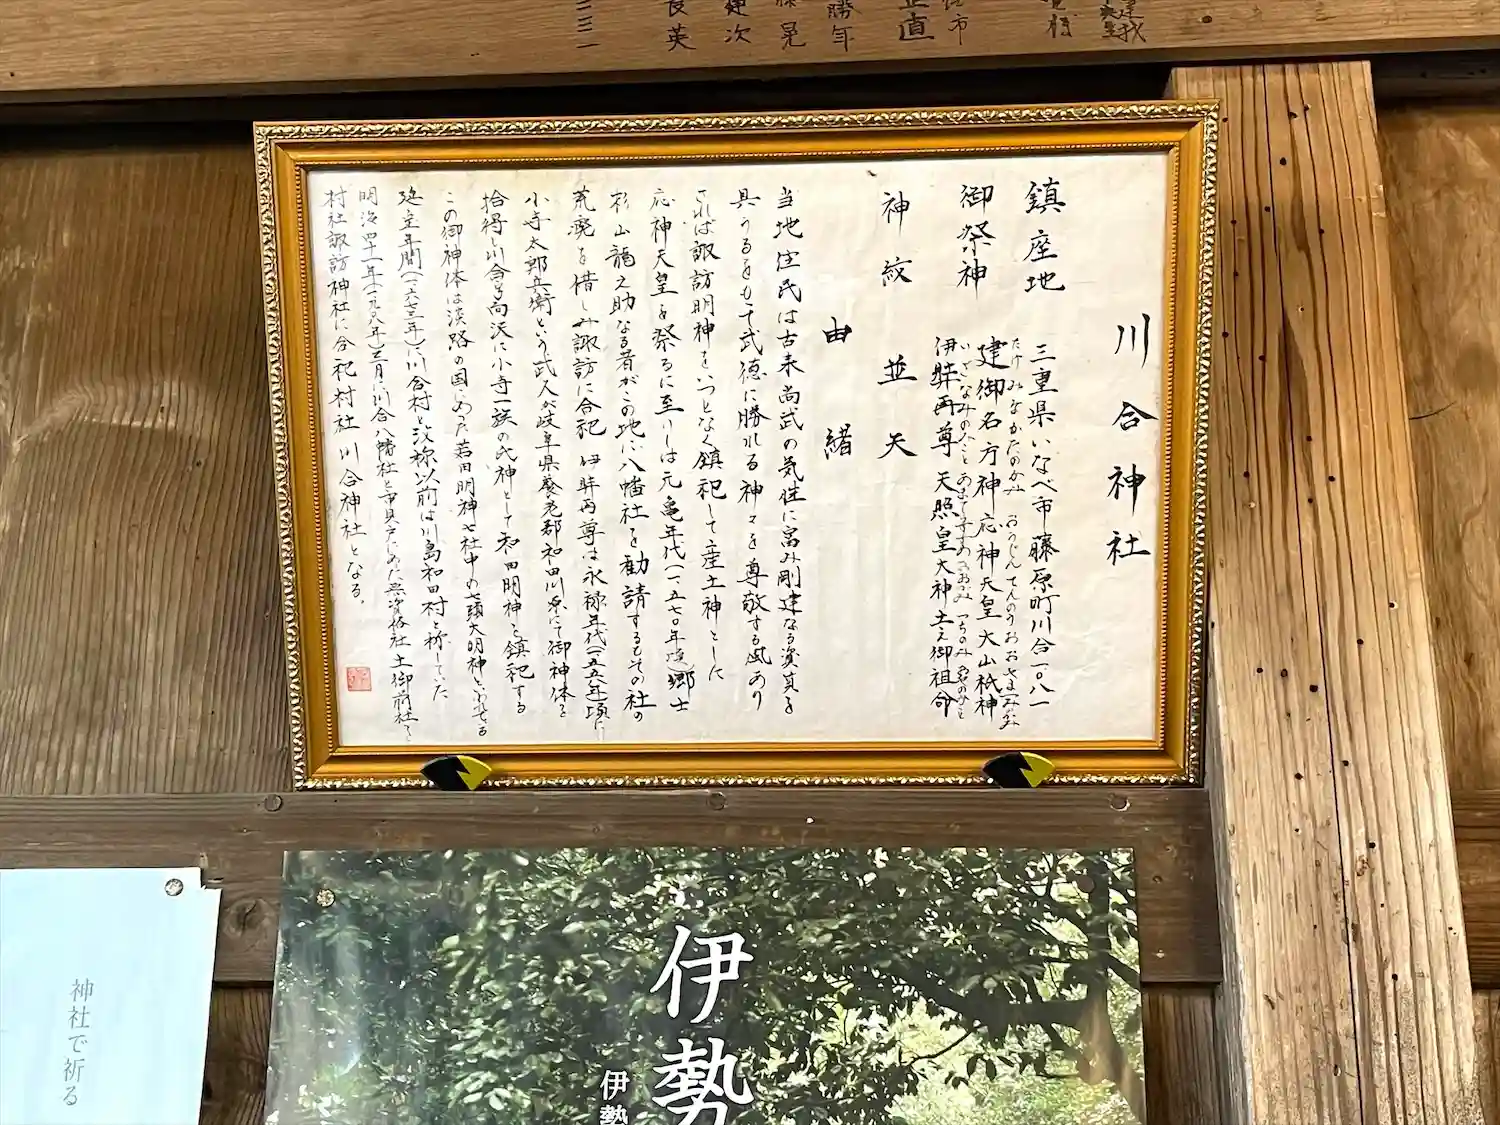 川合神社
鎮座地 三重県いなべ市藤原町川合一〇八一
御祭神 建御名方神 応神天皇 大山祇神
たけみなかたのかみ おうじんてんのう おおやまつみのかみ
伊弉再尊 天照皇大神 土之御祖命
いざなみのみこと
神紋 並矢
由緒
当地住民は古来尚武の気性に富み剛建なる資質を
具うるをもって武徳に勝れる神々を尊敬する風あり
これは諏訪明神をいつとなく鎮祀して産土神とした
応神天皇を祭るに至りしは元亀年代(一五七〇年度)郷士
杉山龍之助なる者がこの地に八幡社を勧請するもその社の
荒廃を惜しみ諏訪に合祀 伊弉再尊は永禄年代(一五五八年)頃に
小寺太郎兵衛という武人が岐阜県養老郡和田川原にて御神体を
拾得し川合字向沢に小寺一族の氏神として和田明神を鎮祀する
この御神体は淡路の国にあった岩田明神七社中の七頭大明神といわれている
延宝年間(一六七三年)に川合村と改称以前は川島和田村と称していた
明治四十一年(一九〇八年)三月に川合八幡社と市貝戸にあった無資格社土御前社を
村社諏訪神社に合祀村社川合神社となる。
良英
建次
勝年
正直
伊勢
伊勢
神社で祈る